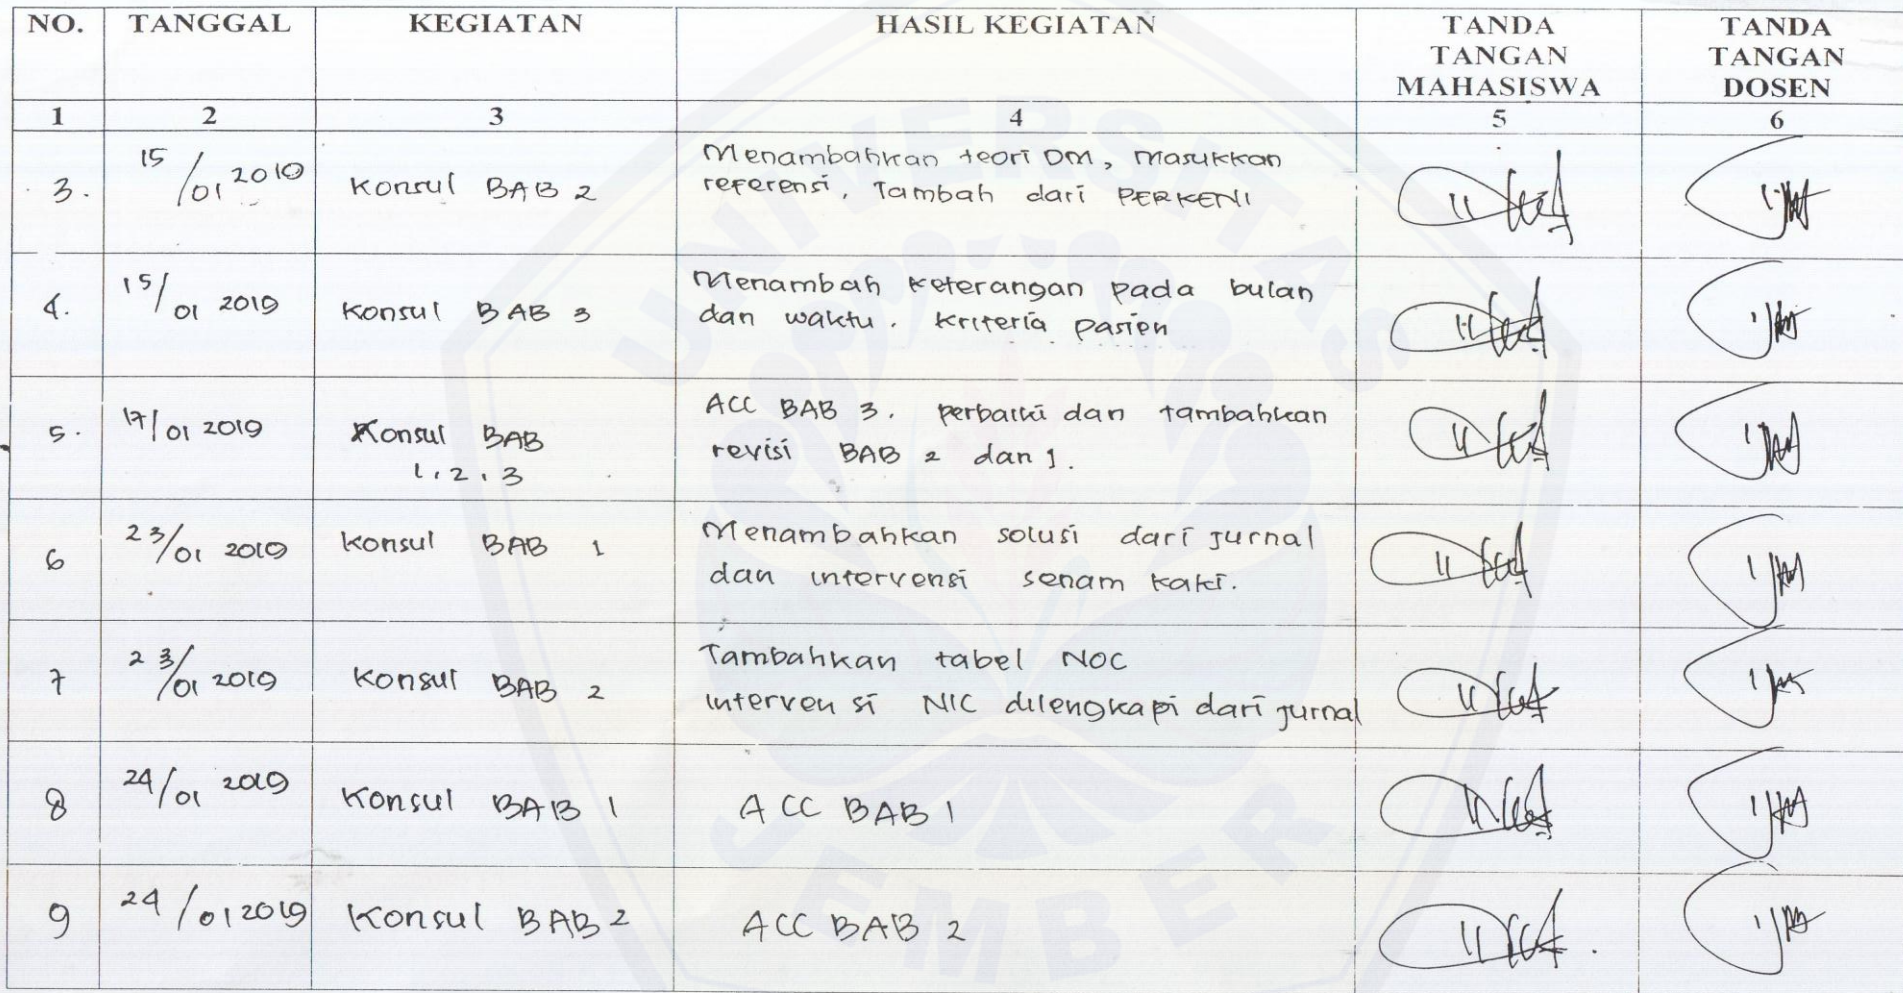 NO. TANGGAL KEGIATAN HASIL KEGIATAN TANDA TANGAN MAHASISWA TANDA TANGAN DOSEN
1 2 3 4 5 6
3. 15/01 2019 Konsul BAB 2 Menambahkan teori DM, Masukkan
referensi, Tambah dari PERKENI
4. 15/01 2019 Konsul BAB 3 Menambah keterangan pada bulan
dan waktu. Kriteria pasien
5. 17/01 2019 Konsul BAB ACC BAB 3. perbaiki dan tambahkan
1, 2, 3 revisi BAB 2 dan 1.
6 23/01 2019 Konsul BAB 1 Menambahkan solusi dari jurnal
dan intervensi senam kaki.
7 23/01 2019 Konsul BAB 2 Tambahkan tabel NOC
intervensi NIC dilengkapi dari jurnal
8 24/01 2019 Konsul BAB 1 ACC BAB 1
9 24/01 2019 Konsul BAB 2 ACC BAB 2
UNIVERSITAS
JEMBER